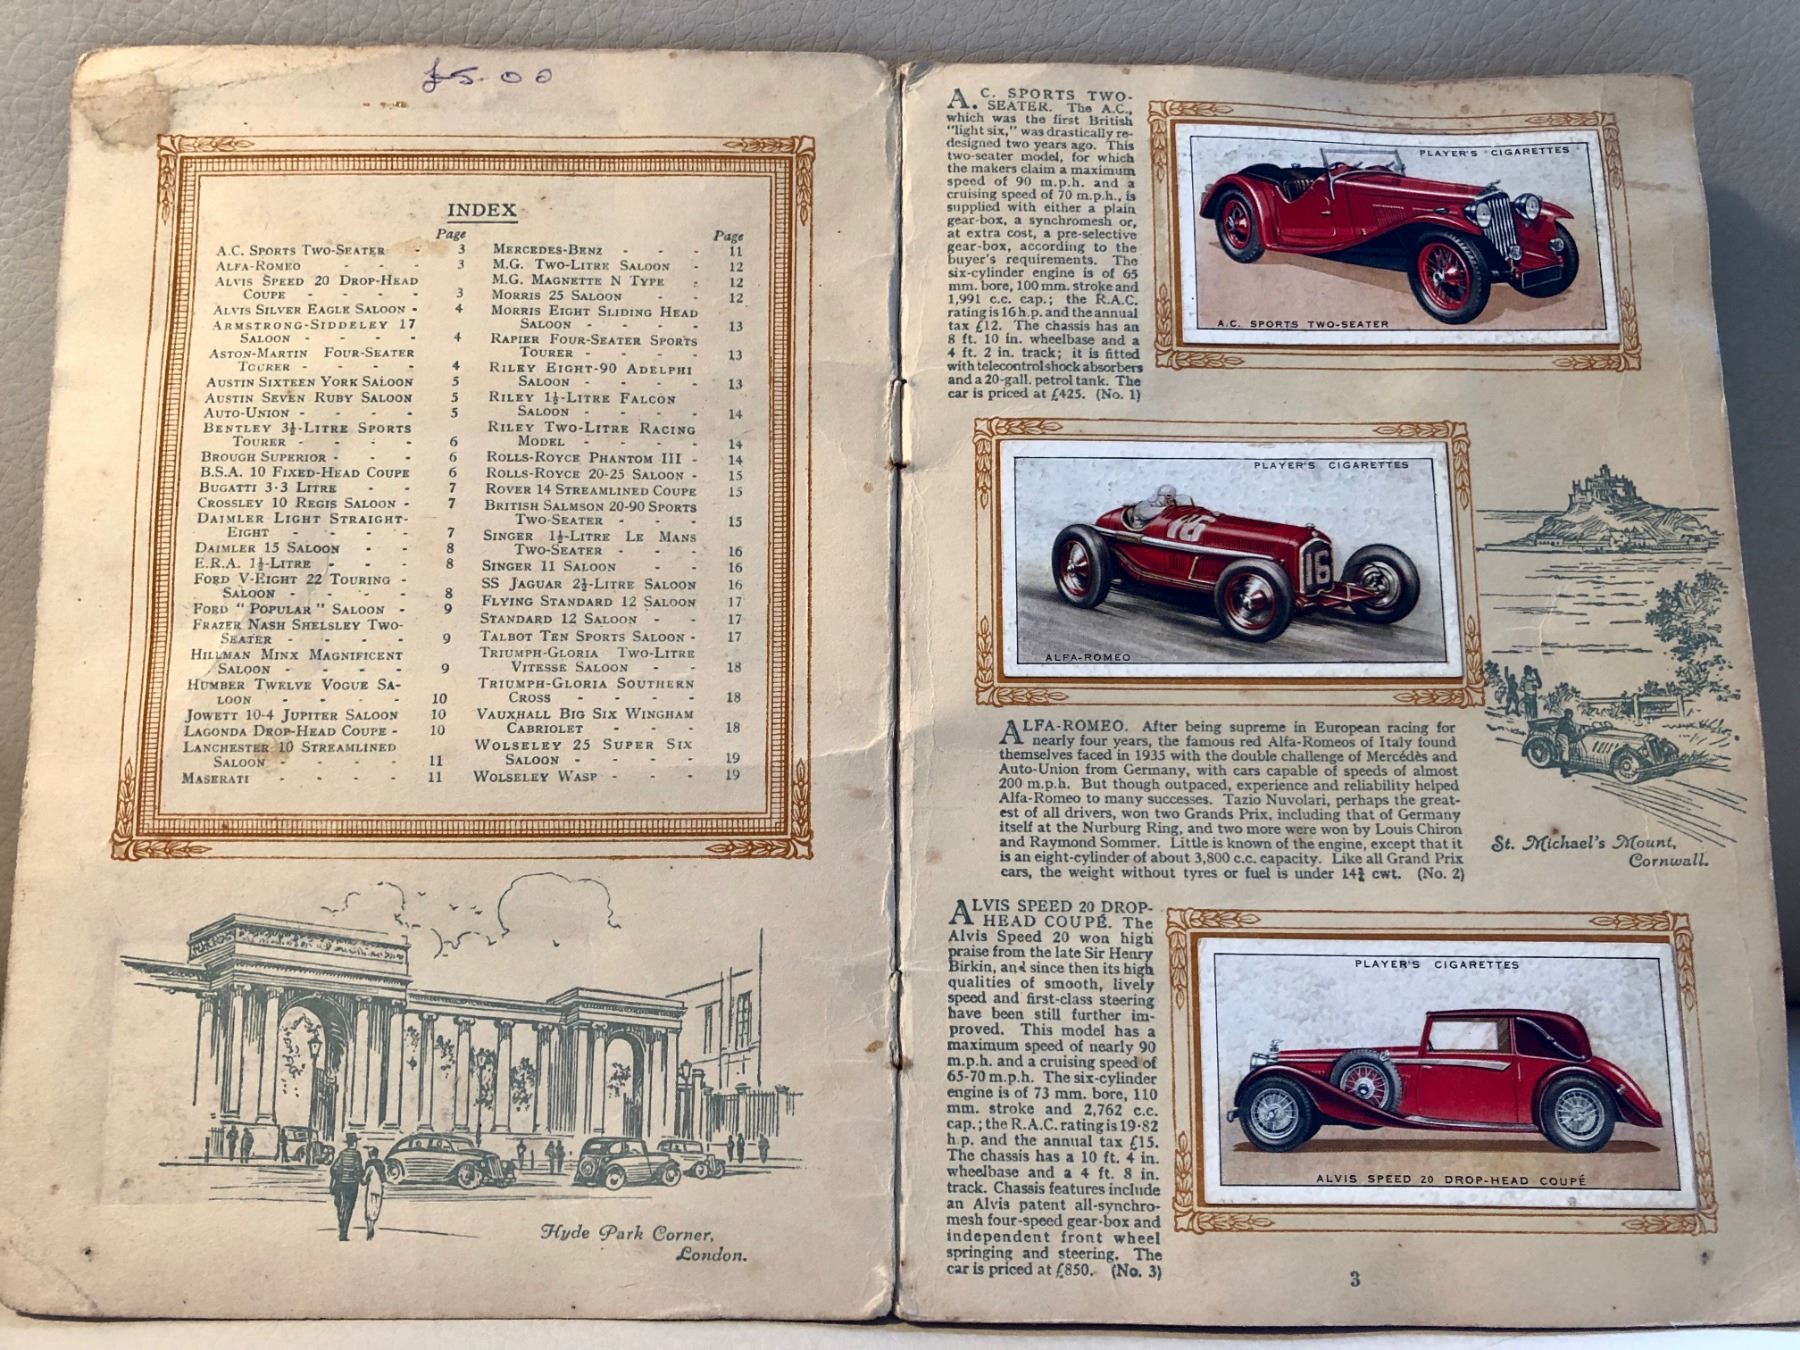 £5.00
INDEX
Page
A.C. SPORTS TWO-SEATER - 3
ALFA-ROMEO - - - 3
ALVIS SPEED 20 DROP-HEAD
COUPE - - - - 3
ALVIS SILVER EAGLE SALOON - 4
ARMSTRONG-SIDDELEY 17
SALOON - - - - 4
ASTON-MARTIN FOUR-SEATER
TOURER - - - - 4
AUSTIN SIXTEEN YORK SALOON 5
AUSTIN SEVEN RUBY SALOON 5
AUTO-UNION - - - - 5
BENTLEY 3½-LITRE SPORTS
TOURER - - - - 6
BROUGH SUPERIOR - - - 6
B.S.A. 10 FIXED-HEAD COUPE 6
BUGATTI 3·3 LITRE - - 7
CROSSLEY 10 REGIS SALOON - 7
DAIMLER LIGHT STRAIGHT-
EIGHT - - - - 7
DAIMLER 15 SALOON - - 8
E.R.A. 1½-LITRE - - - 8
FORD V-EIGHT 22 TOURING -
SALOON - - - - 8
FORD "POPULAR" SALOON - 9
FRAZER NASH SHELSLEY TWO-
SEATER - - - - 9
HILLMAN MINX MAGNIFICENT
SALOON - - - - 9
HUMBER TWELVE VOGUE SA-
LOON - - - - 10
JOWETT 10-4 JUPITER SALOON 10
LAGONDA DROP-HEAD COUPE - 10
LANCHESTER 10 STREAMLINED
SALOON - - - - 11
MASERATI - - - - 11
Page
MERCEDES-BENZ - - - 11
M.G. TWO-LITRE SALOON - 12
M.G. MAGNETTE N TYPE - 12
MORRIS 25 SALOON - - 12
MORRIS EIGHT SLIDING HEAD
SALOON - - - - 13
RAPIER FOUR-SEATER SPORTS
TOURER - - - - 13
RILEY EIGHT-90 ADELPHI
SALOON - - - - 13
RILEY 1½-LITRE FALCON
SALOON - - - - 14
RILEY TWO-LITRE RACING
MODEL - - - - 14
ROLLS-ROYCE PHANTOM III - 14
ROLLS-ROYCE 20-25 SALOON - 15
ROVER 14 STREAMLINED COUPE 15
BRITISH SALMSON 20-90 SPORTS
TWO-SEATER - - - 15
SINGER 1½-LITRE LE MANS
TWO-SEATER - - - 16
SINGER 11 SALOON - - 16
SS JAGUAR 2½-LITRE SALOON 16
FLYING STANDARD 12 SALOON 17
STANDARD 12 SALOON - - 17
TALBOT TEN SPORTS SALOON - 17
TRIUMPH-GLORIA TWO-LITRE
VITESSE SALOON - - 18
TRIUMPH-GLORIA SOUTHERN
CROSS - - - - 18
VAUXHALL BIG SIX WINGHAM
CABRIOLET - - - 18
WOLSELEY 25 SUPER SIX
SALOON - - - - 19
WOLSELEY WASP - - - 19
Hyde Park Corner,
London.
A.C. SPORTS TWO-
SEATER. The A.C.,
which was the first British
"light six," was drastically re-
designed two years ago. This
two-seater model, for which
the makers claim a maximum
speed of 90 m.p.h. and a
cruising speed of 70 m.p.h., is
supplied with either a plain
gear-box, a synchromesh or,
at extra cost, a pre-selective
gear-box, according to the
buyer's requirements. The
six-cylinder engine is of 65
mm. bore, 100 mm. stroke and
1,991 c.c. cap.; the R.A.C.
rating is 16 h.p. and the annual
tax £12. The chassis has an
8 ft. 10 in. wheelbase and a
4 ft. 2 in. track; it is fitted
with telecontrol shock absorbers
and a 20-gall. petrol tank. The
car is priced at £425. (No. 1)
PLAYER'S CIGARETTES
A.C. SPORTS TWO-SEATER
PLAYER'S CIGARETTES
16
16
ALFA-ROMEO
ALFA-ROMEO. After being supreme in European racing for
nearly four years, the famous red Alfa-Romeos of Italy found
themselves faced in 1935 with the double challenge of Mercédès and
Auto-Union from Germany, with cars capable of speeds of almost
200 m.p.h. But though outpaced, experience and reliability helped
Alfa-Romeo to many successes. Tazio Nuvolari, perhaps the great-
est of all drivers, won two Grands Prix, including that of Germany
itself at the Nurburg Ring, and two more were won by Louis Chiron
and Raymond Sommer. Little is known of the engine, except that it
is an eight-cylinder of about 3,800 c.c. capacity. Like all Grand Prix
cars, the weight without tyres or fuel is under 14¾ cwt. (No. 2)
St. Michael's Mount,
Cornwall.
ALVIS SPEED 20 DROP-
HEAD COUPÉ. The
Alvis Speed 20 won high
praise from the late Sir Henry
Birkin, and since then its high
qualities of smooth, lively
speed and first-class steering
have been still further im-
proved. This model has a
maximum speed of nearly 90
m.p.h. and a cruising speed of
65-70 m.p.h. The six-cylinder
engine is of 73 mm. bore, 110
mm. stroke and 2,762 c.c.
cap.; the R.A.C. rating is 19·82
h.p. and the annual tax £15.
The chassis has a 10 ft. 4 in.
wheelbase and a 4 ft. 8 in.
track. Chassis features include
an Alvis patent all-synchro-
mesh four-speed gear-box and
independent front wheel
springing and steering. The
car is priced at £850. (No. 3)
PLAYER'S CIGARETTES
ALVIS SPEED 20 DROP-HEAD COUPÉ
3